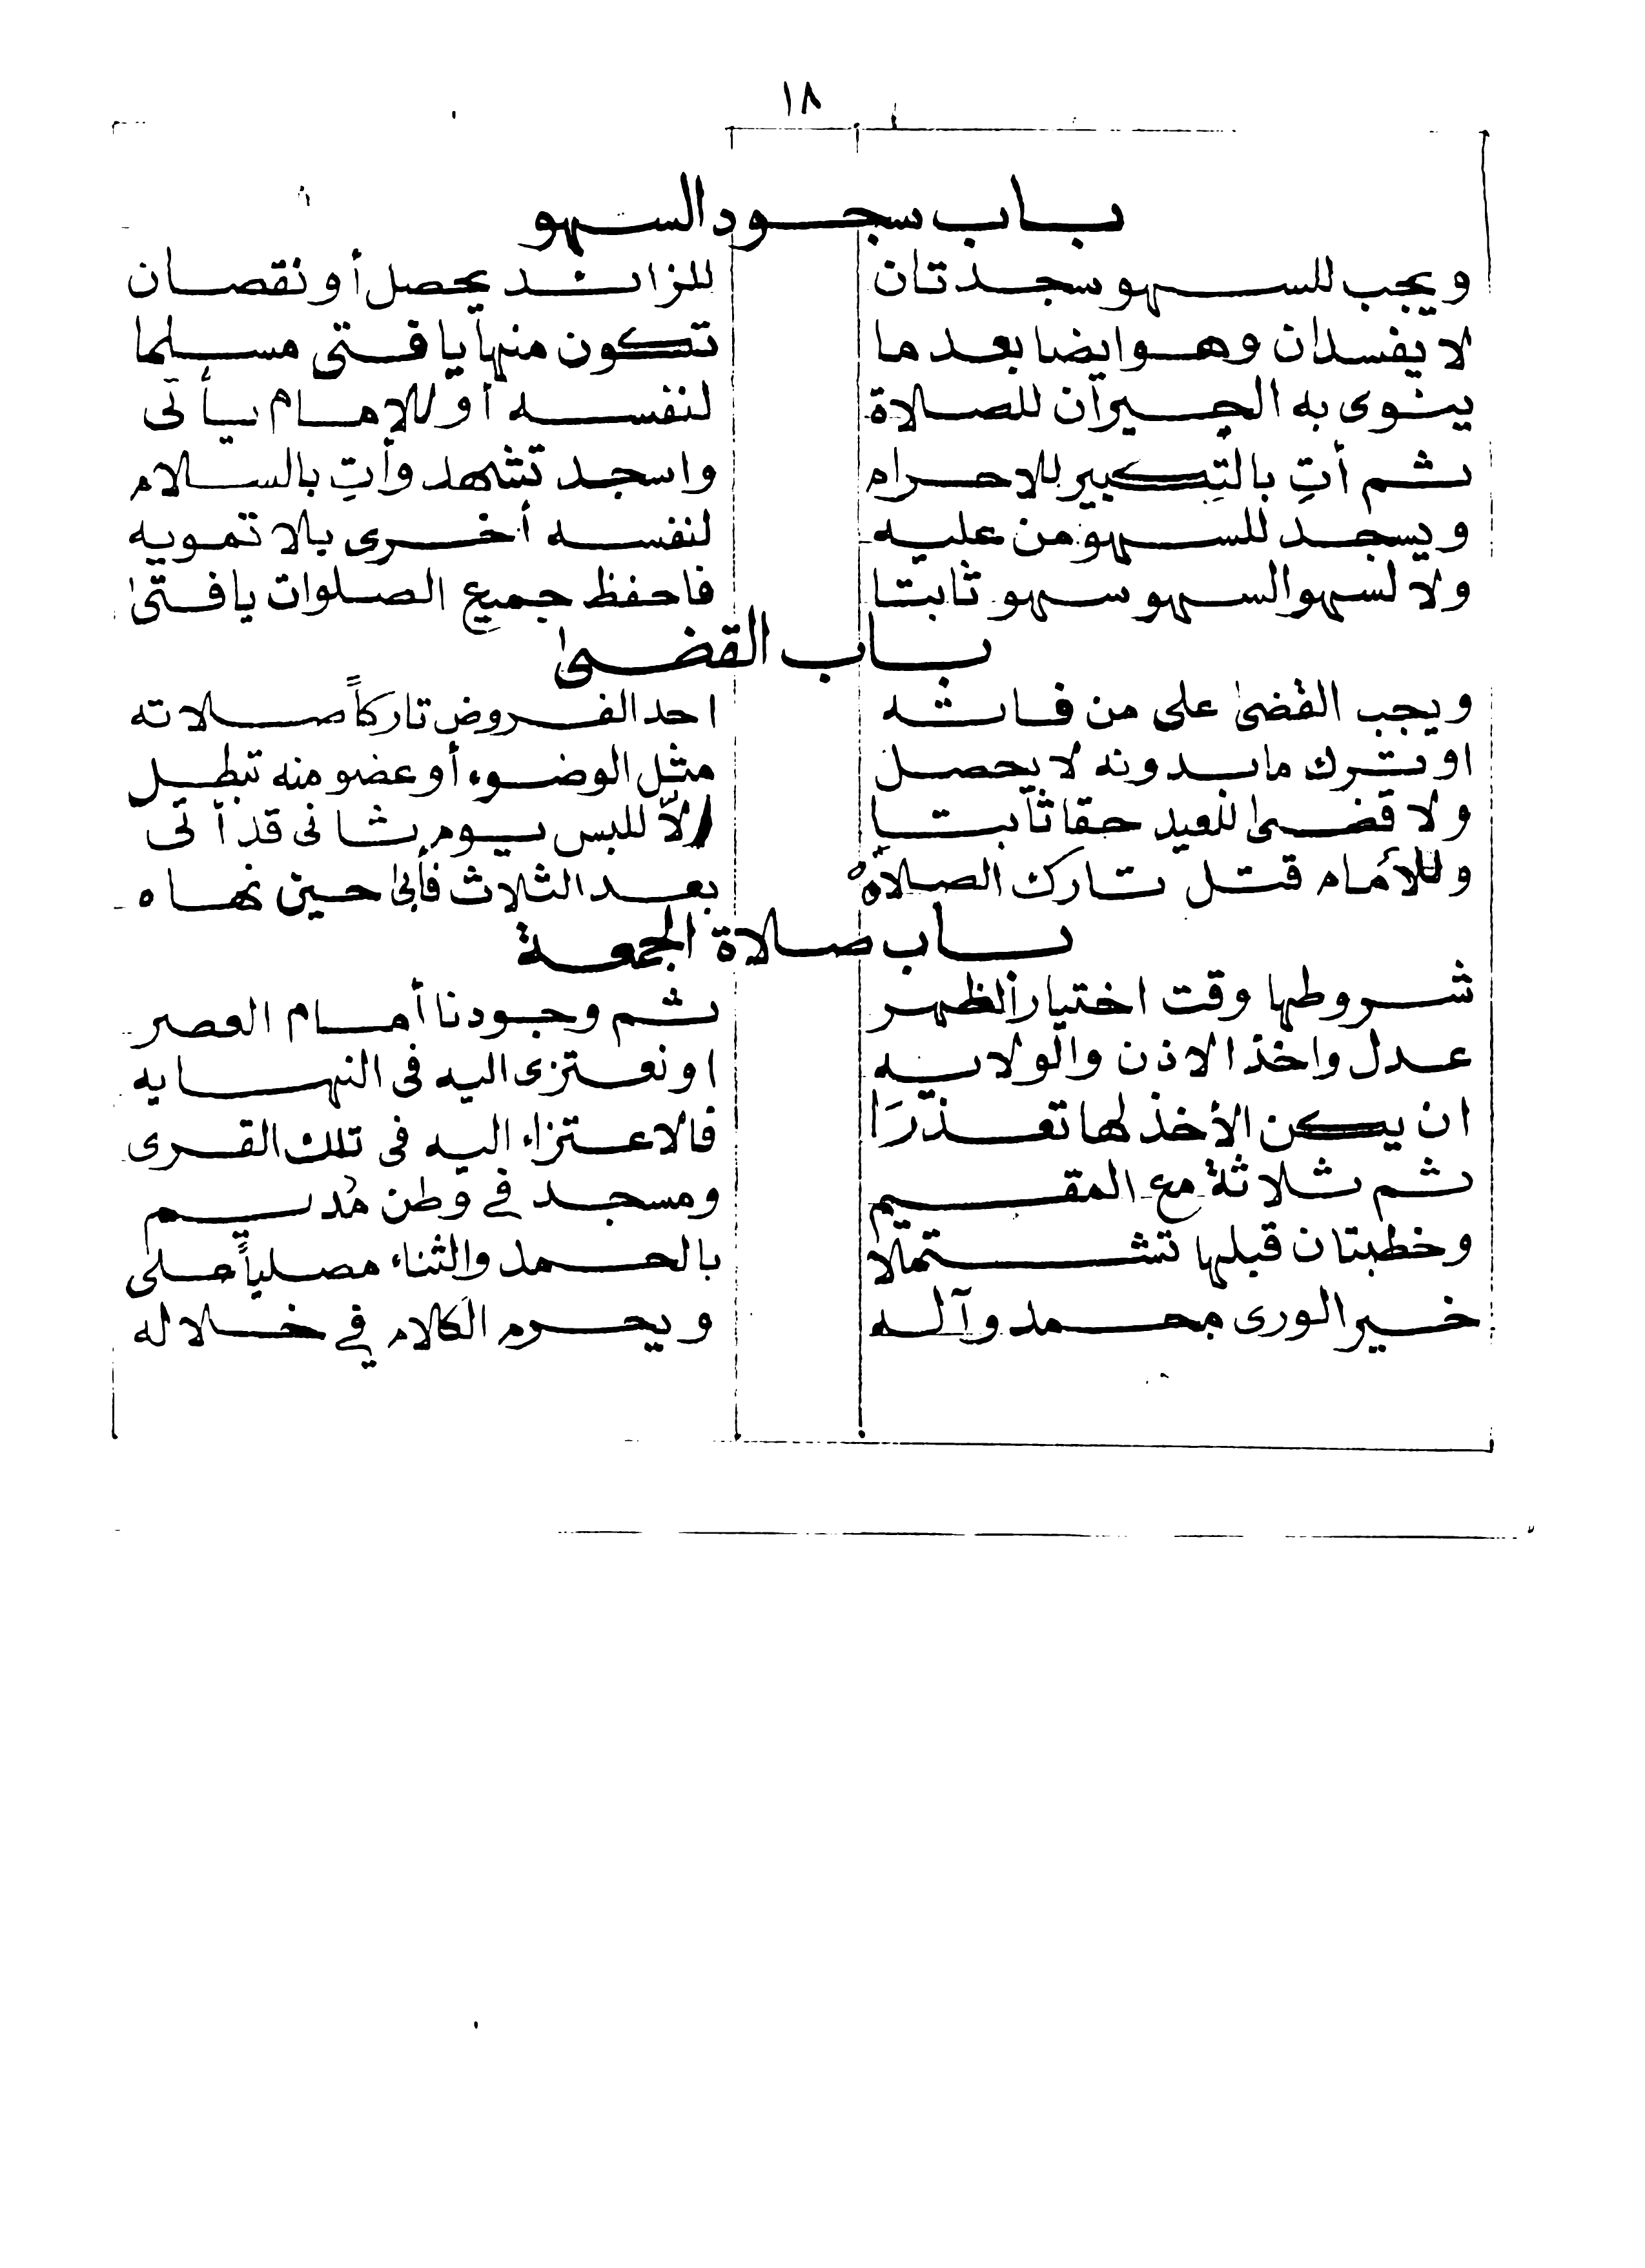 ١٨
باب سجود السهو
ويجب للسهو سجدتان للزائد يحصل أو نقصان
لا يفسدان وهو ايضا بعد ما تكون منها يا فتى مسلما
ينوى به الجبران للصلاة لنفسه أو للإمام يأتى
ثم أتِ بالتكبير للاحرام واسجد تشهد وأتِ بالسلام
ويسجد للسهو من عليه لنفسه أخرى بلا تمويه
ولا لسهو السهو سهو ثابتا فاحفظ جميع الصلوات يا فتى
باب القضى
ويجب القضى على من فاته احد الفروض تاركاً صلاته
او يترك ما بدونه لا يحصل مثل الوضوء أو عضو منه تبطل
ولا قضى للعيد حقا ثابتا إلّا للبس يوم ثانى قد أتى
وللأمام قتل تارك الصلاه بعد الثلاث فأبى حين نهاه
باب صلاة الجمعة
شروطها وقت اختيار الظهر ثم وجودنا أمام العصر
عدل واخذ الاذن والولايه او نعتزى اليه فى النهايه
ان يكن الأخذ لها تعذّرَا فالاعتزاء اليه فى تلك القرى
ثم ثلاثة مع المقيم ومسجد في وطن مُديم
وخطبتان قبلها تشتملا بالحمد والثناء مصلياً على
خير الورى محمد وآله ويحرم الكلام في خلاله